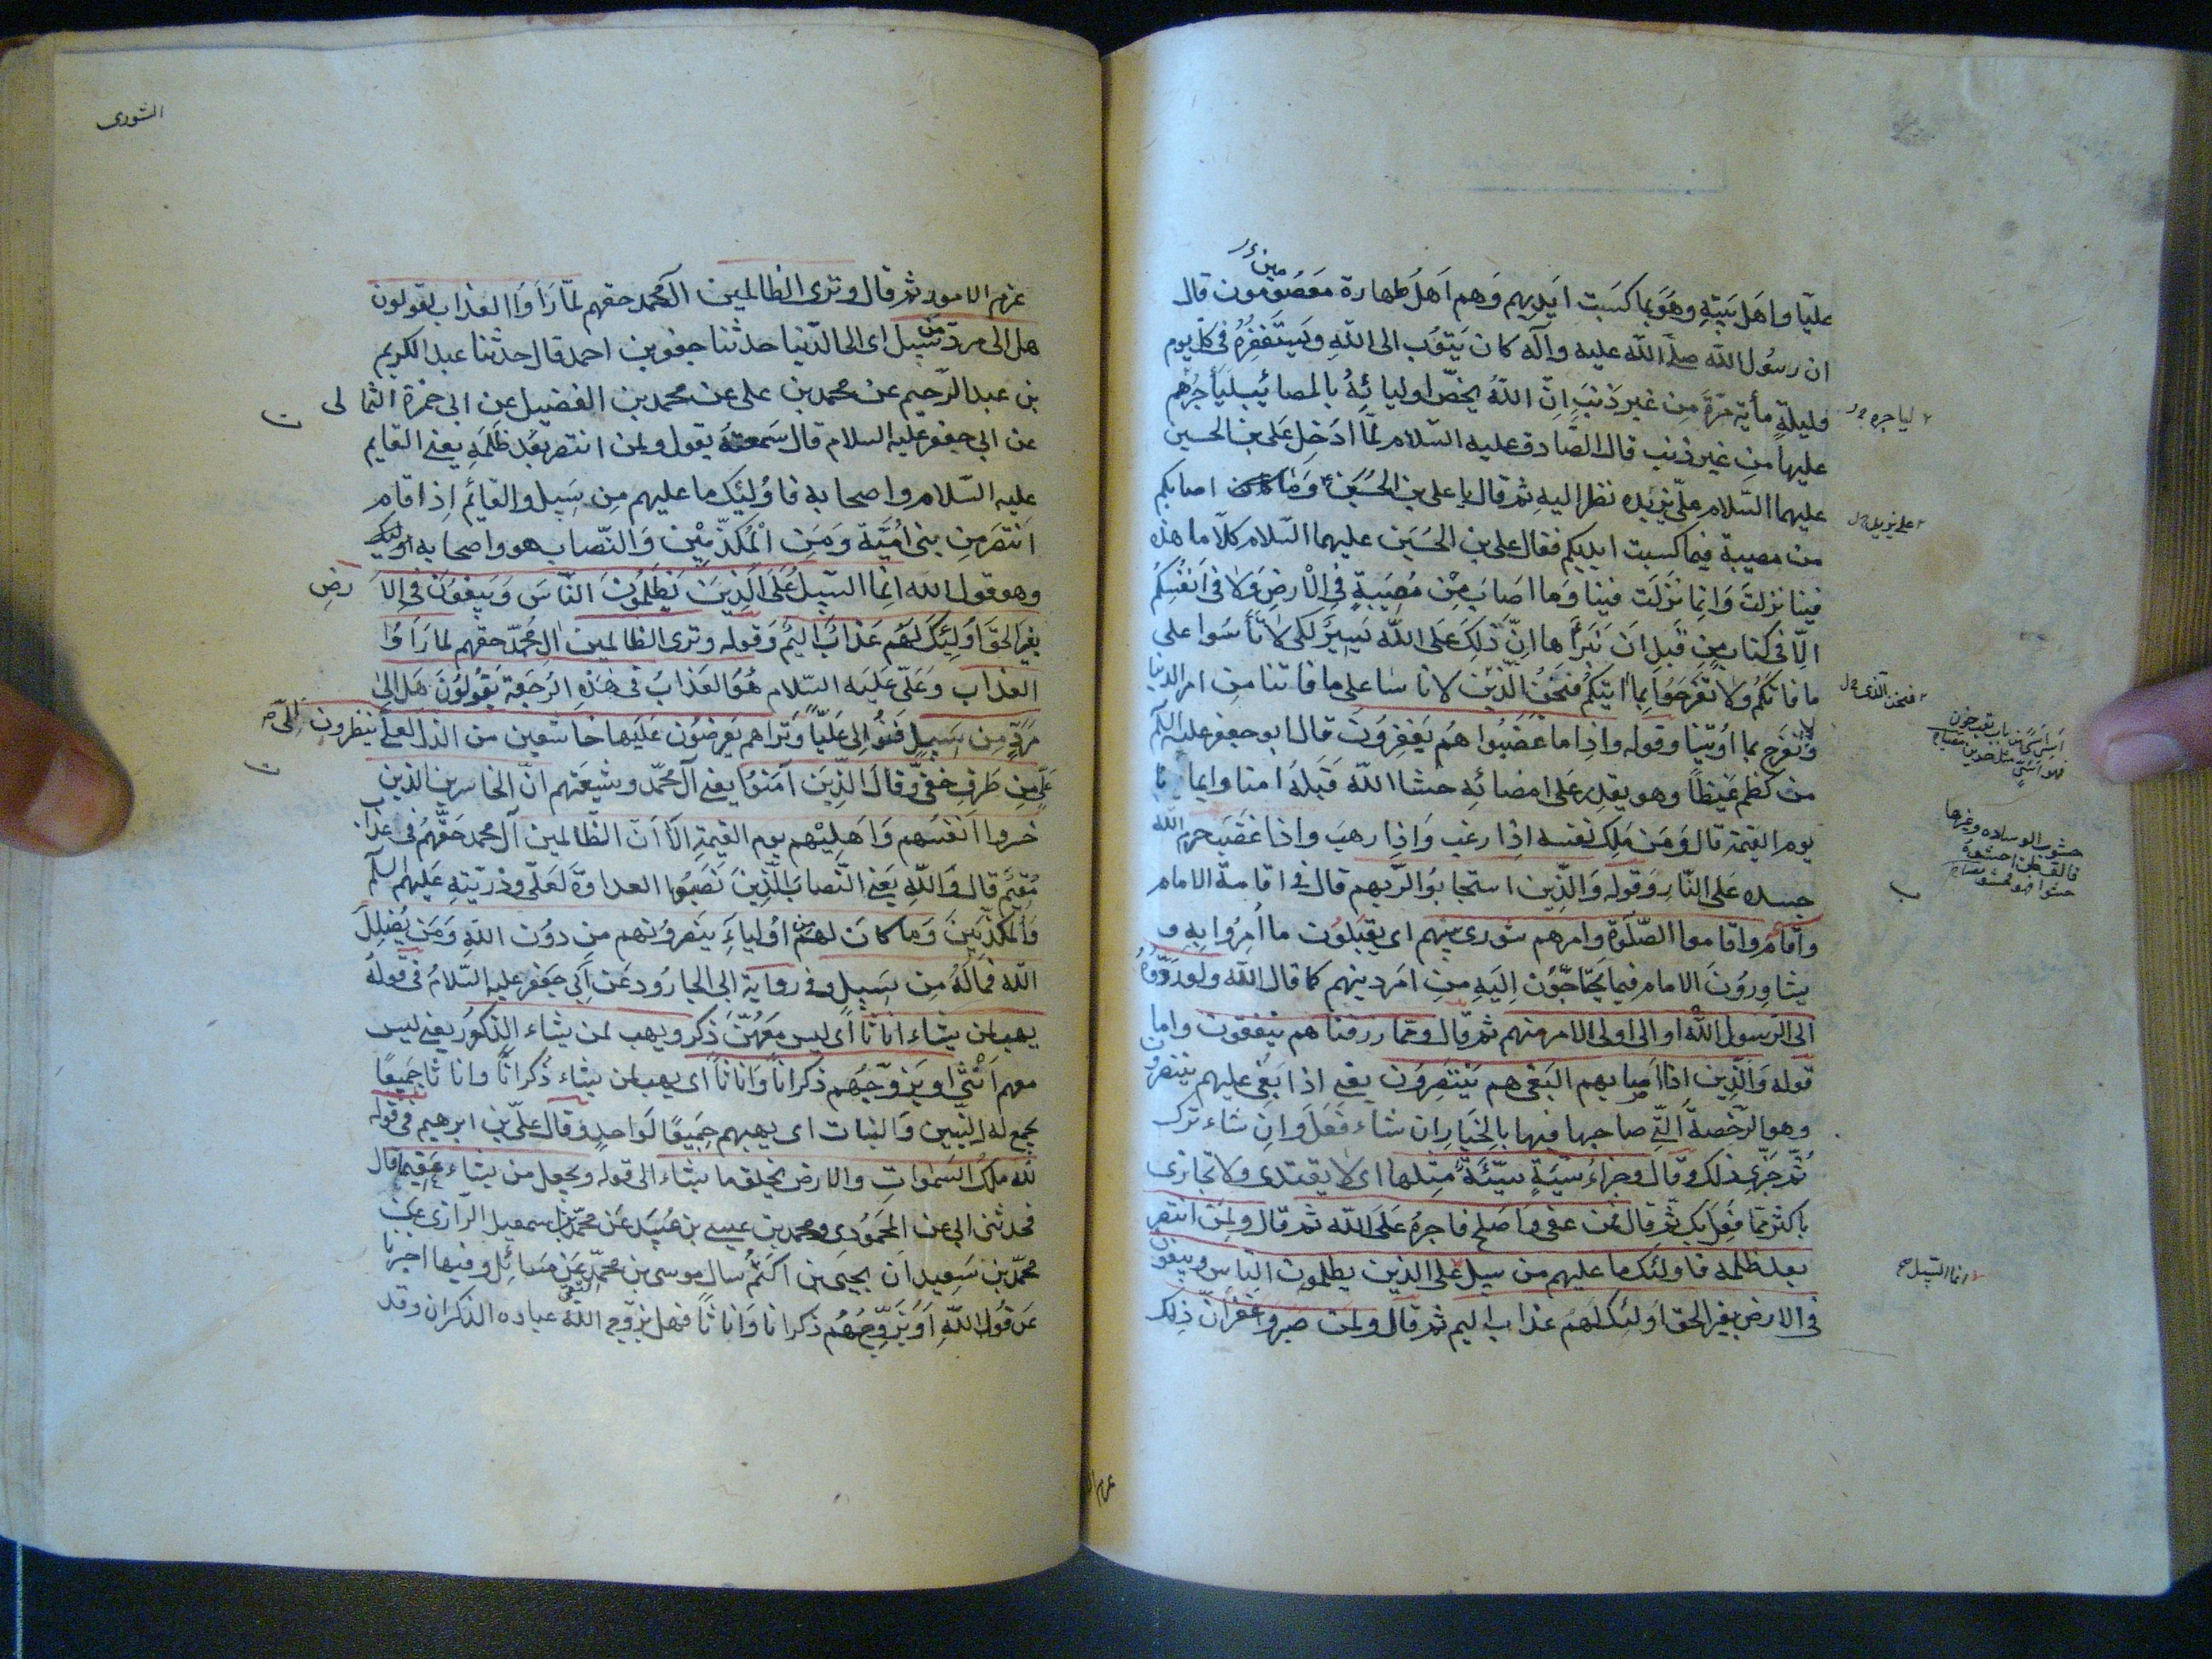 عليّا واهل بيته وهو بما كسبت ايديهم وهم اهل طهارة معصومون قال
مين
ان رسول الله صلّى الله عليه وآله كان يتوب الى الله ويستغفره في كل يوم
وليلة مأية مرّة من غير ذنب انّ الله يخصّ اوليائه بالمصائب ليأجرهم
لياجره
عليها من غير ذنب قال الصّادق عليه السّلام لمّا ادخل على بن الحسين
عليهما السّلام على يزيد نظر اليه ثم قال يا على بن الحسين وما اصابكم
على يزيد ل
من مصيبة فبما كسبت ايديكم فقال على بن الحسين عليهما السّلام كلّا ما هذه
فينا نزلت وانما نزلت فينا وما اصاب من مصيبة في الارض ولا في انفسكم
الّا في كتاب من قبل ان نبرأها انّ ذلك على الله يسير لكى لا تأسوا على
ما فاتكم ولا تفرحوا بما اتيكم فنحن الّذين لا ناسا على ما فاتنا من امر الدنيا
فنحن الذى ل
ولا نفرح بما اوتينا وقوله واذا ما غضبوا هم يغفرون قال ابو جعفر عليه السلم
من كظم غيظا وهو يقدر على امضائه حشا الله قلبه امنا وايمانا
يوم القيمة قال ومن ملك نفسه اذا رغب واذا رهب واذا غضب حرم الله
حشوت الوساده وغيرها
بالقطن احشو
جسده على النّار وقوله والّذين استجابوا لربّهم قال في اقامة الامام
واقاموا الصّلوة وامرهم شورى بينهم اى يقبلون ما امروا به و
يشاورون الامام فيما يحتاجون اليه من امر دينهم كما قال الله ولو ردّوه
الى الرسول الله او الى اولى الامر منهم ثم قال ومما رزقناهم ينفقون واما
قوله والّذين اذا اصابهم البغى هم ينتصرون يعني اذا بغى عليهم ينتصرون
وهو الرّخصة الّتى صاحبها فيها بالخيار ان شاء فعل وان شاء ترك
ثم جزى ذلك وقال وجزاء سيّئة سيّئة مثلها اى لا يعتدى ولا تجازى
باكثر مما فعل بك ثم قال فمن عفى واصلح فاجره على الله ثم قال ولمن انتصر
بعد ظلمه فاولئك ما عليهم من سبيل على الذين يظلمون الناس ويبغون
انما السّبيل صح
في الارض بغير الحق اولئك لهم عذاب اليم ثم قال ولمن صبر وغفر انّ ذلك
عزم ال
الشورى
عزم الامور ثم قال وترى الظالمين آل محمد حقهم لمّا راوا العذاب يقولون
هل الى مردّ من سبيل اى الى الدّنيا حدثنا جعفر بن احمد قال حدثنا عبد الكريم
بن عبد الرّحيم عن محمد بن على عن محمد بن الفضيل عن ابى حمزة الثمالى
عن ابي جعفر عليه السلام قال سمعته يقول ولمن انتصر بعد ظلمه يعني القايم
عليه السّلام واصحابه فاولئك ما عليهم من سبيل والقايم اذا قام
انتصر من بنى اميّة ومن المكذّبين والنّصاب هو واصحابه اوليك
وهو قول الله انما السّبيل على الّذين يظلمون النّاس ويبغون في الارض
بغير الحق اولئك لهم عذاب اليم وقوله وترى الظالمين ال محمّد حقهم لما راوا
العذاب وعلىّ عليه السّلام هو العذاب في هذه الرّجعة يقولون هل الى
مردّ من سبيل فنوالى عليّا وتراهم يعرضون عليها خاشعين من الذل لعلىّ ينظرون الى
علىّ من طرف خفىّ وقال الّذين آمنوا يعني آل محمّد وشيعتهم انّ الخاسرين الذين
خسروا انفسهم واهليهم يوم القيمة الا انّ الظّالمين آل محمد حقّهم في عذاب
مقيم قال والله يعني النّصاب الّذين نصبوا العداوة لعلىّ وذريّته عليهم السلم
والمكذّبين وما كان لهم من اولياء ينصرونهم من دون الله ومن يضلل
الله فما له من سبيل وفي رواية ابى الجارود عن ابى جعفر عليه السّلام في قوله
يهب لمن يشاء اناثا اى ليس معهنّ ذكر ويهب لمن يشاء الذّكور يعني ليس
معهم انثى او يزوّجهم ذكرانا واناثا اى يهب لمن يشاء ذكرانا واناثا جميعا
يجمع له البنين والبنات اى يهبهم جميعا لواحد وقال علىّ بن ابرهيم في قوله
لله ملك السّموات والارض يخلق ما يشاء الى قوله ويجعل من يشاء عقيما قال
فحدثنى ابى عن المحمودى ومحمد بن عيسى بن عبيد عن محمّد بن اسمعيل الرّازى عن
محمّد بن سعيد ان يحيى بن اكثم سال موسى بن محمّد عن مسائل وفيها اخبرنا
عن قول الله او يزوّجهم ذكرانا واناثا فهل يزوّج الله عباده الذكران وقد